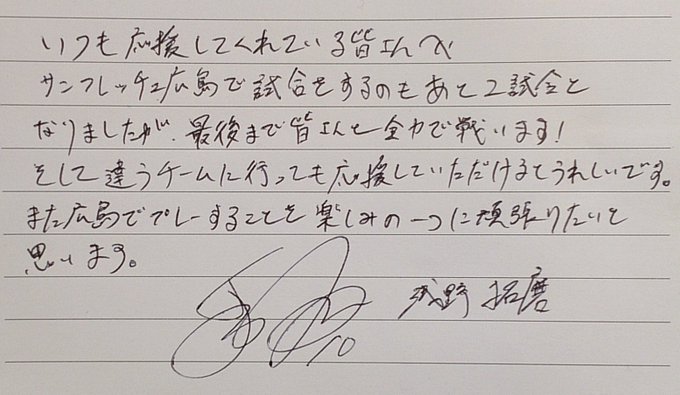 いつも応援してくれている皆さんへ
サンフレッチェ広島で試合をするのもあと2試合と
なりましたが、最後まで皆さんと全力で戦います!
そして違うチームに行っても応援していただけるとうれしいです。
また広島でプレーすることを楽しみの一つに頑張りたいと
思います。
浅野 拓磨
10